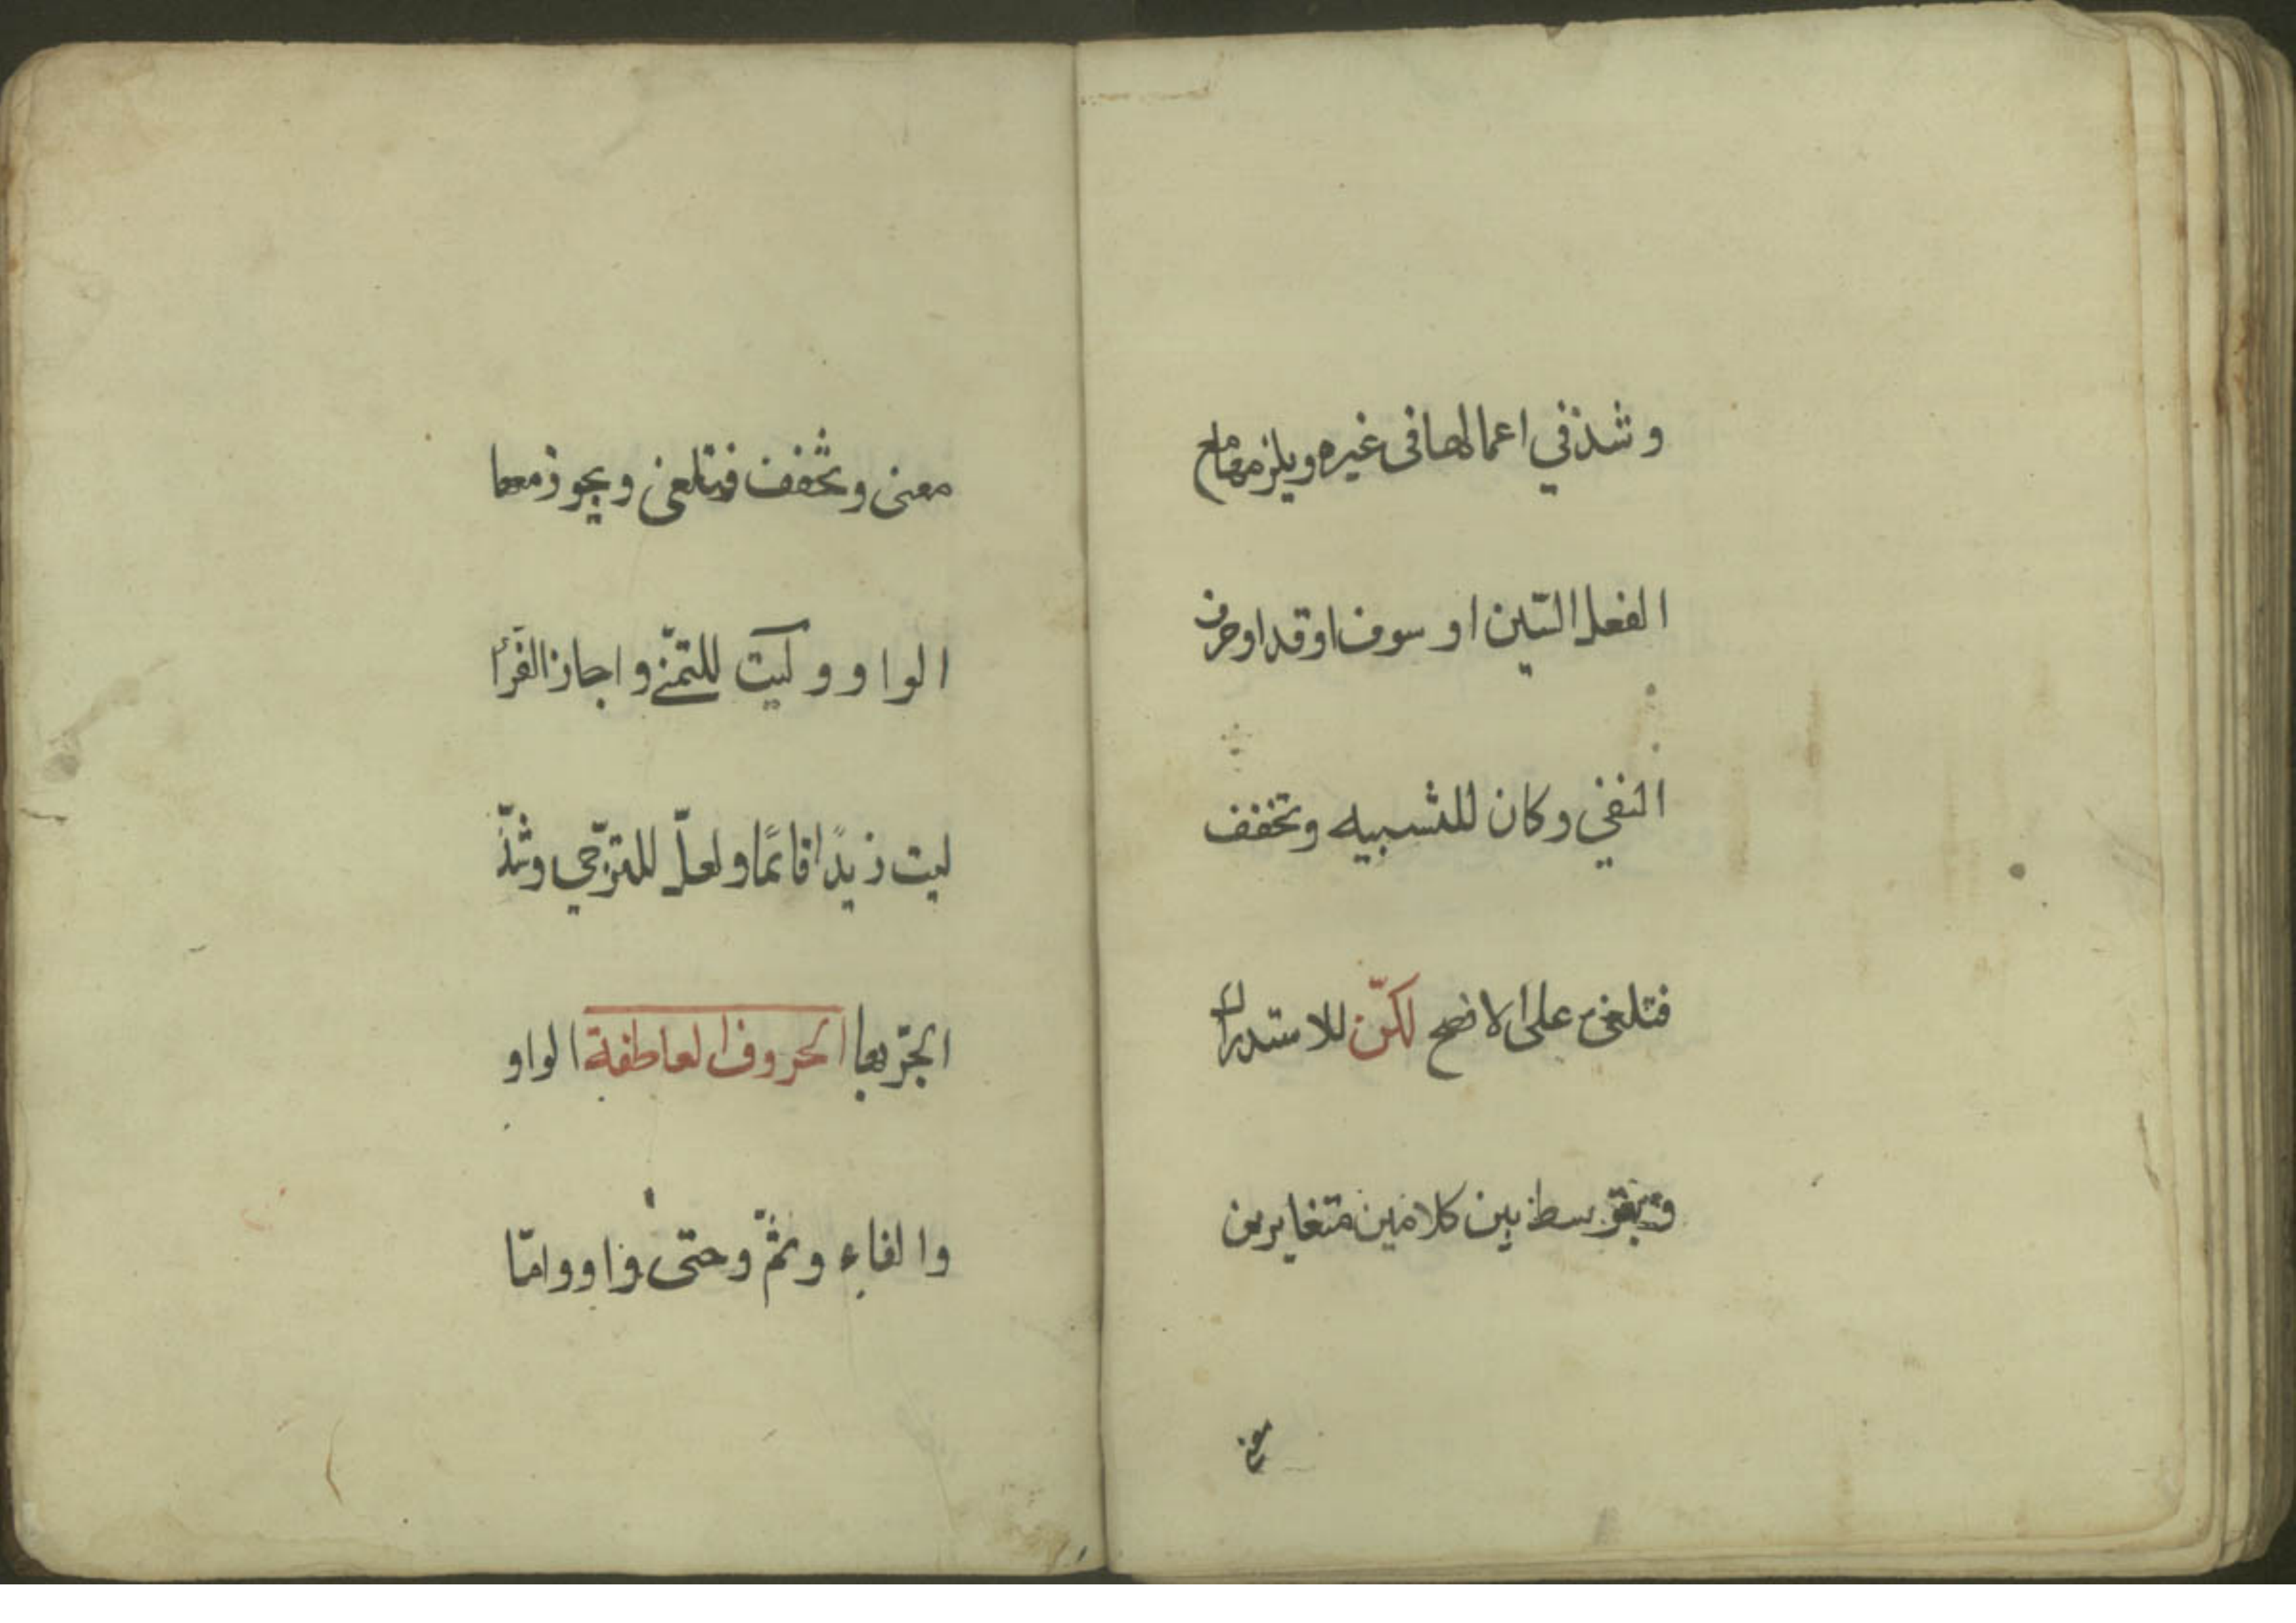 وشذ في اعمالها فى غيره ويلزمها مع
الفعل السّين او سوف او قد او حرف
النفي وكان للتشبيه وتخفف
فتلغى على الافصح لكنّ للاستدراك
وتتوسط بين كلامين متغايرين
معنى
معنى وتخفف فتلغى ويجوز معها
الواو وليت للتمنّي واجاز الفرّاء
ليت زيدًا قائمًا ولعلّ للترّجي وشذّ
الجرّ بها الحروف العاطفة الواو
والفاء وثمّ وحتى واو وامّا